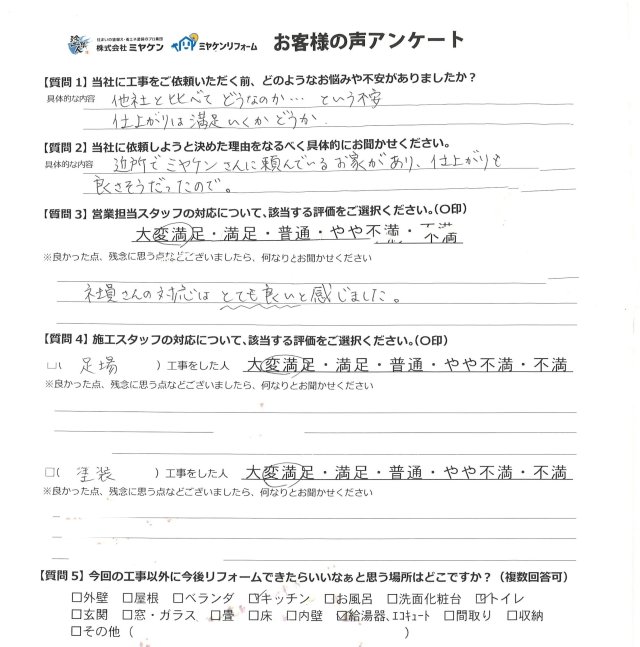 住まいの塗替え・省エネ塗装のプロ集団
株式会社 ミヤケン ミヤケンリフォーム お客様の声アンケート
【質問 1】当社に工事をご依頼いただく前、どのようなお悩みや不安がありましたか?
具体的な内容 他社と比べてどうなのか… という不安
仕上がりは満足いくかどうか.
【質問 2】当社に依頼しようと決めた理由をなるべく具体的にお聞かせください。
具体的な内容 近所でミヤケンさんに頼んでいるお家があり、仕上がりも
良さそうだったので。
【質問 3】営業担当スタッフの対応について、該当する評価をご選択ください。(○印)
大変満足・満足・普通・やや不満・不満
※良かった点、残念に思う点などございましたら、何なりとお聞かせください
社員さんの対応はとても良いと感じました。
【質問 4】施工スタッフの対応について、該当する評価をご選択ください。(○印)
□( 足場 )工事をした人 大変満足・満足・普通・やや不満・不満
※良かった点、残念に思う点などございましたら、何なりとお聞かせください
□( 塗装 )工事をした人 大変満足・満足・普通・やや不満・不満
※良かった点、残念に思う点などございましたら、何なりとお聞かせください
【質問 5】今回の工事以外に今後リフォームできたらいいなぁと思う場所はどこですか?(複数回答可)
□外壁 □屋根 □ベランダ ☑キッチン □お風呂 □洗面化粧台 ☑トイレ
□玄関 □窓・ガラス □畳 □床 □内壁 ☑給湯器、エコキュート □間取り □収納
□その他 ( )